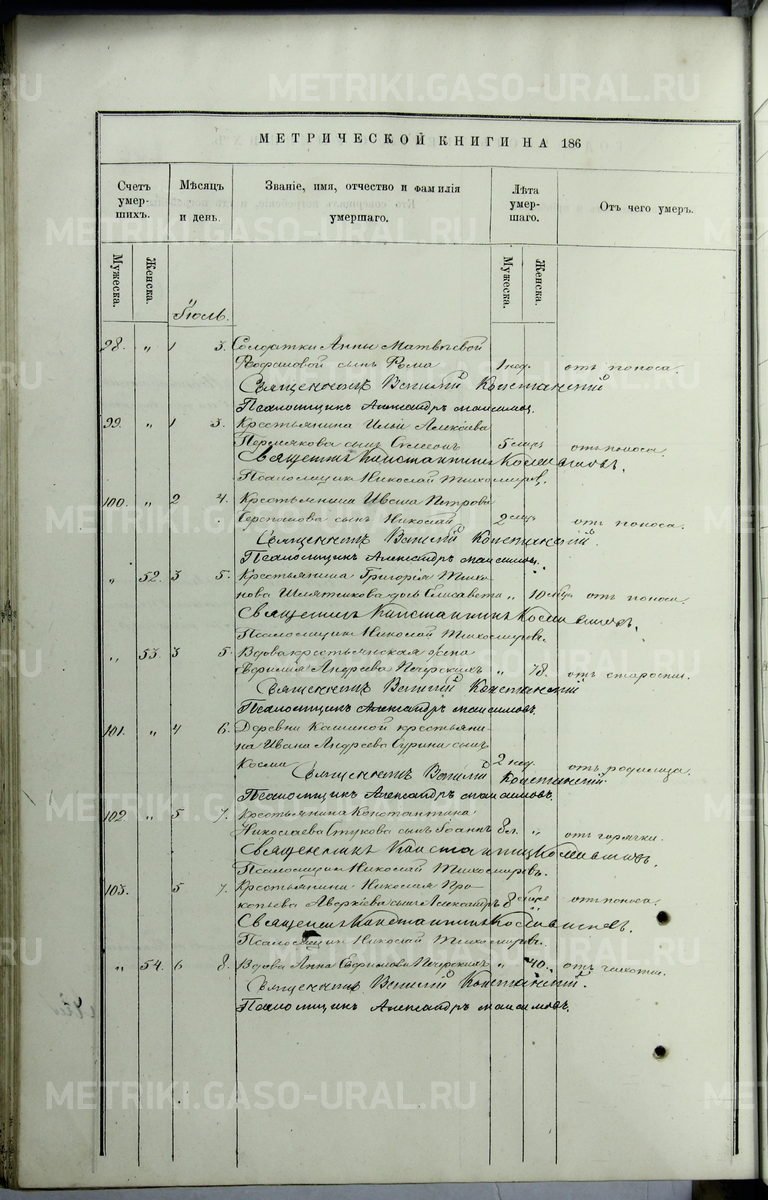 МЕТРИЧЕСКОЙ КНИГИ НА 186
Счетъ умерших. Мѣсяцъ и день. Званіе, имя, отчество и фамилія умершаго. Лѣта умершаго. Отъ чего умеръ.
Мужеска. Женска. Мужеска. Женска.
Іюль.
98. „ 1 3. Солдатки Анны Матвѣевой
сынъ Рома 1 нед. отъ поноса.
Священникъ Василій
Псаломщикъ Александръ Максимовъ.
99. „ 1 3. Крестьянина Ильи Алексѣева
Пермякова сынъ Симеонъ 5 отъ поноса.
Священникъ Константинъ
Псаломщикъ Николай Тихомировъ.
100. „ 2 4. Крестьянина Ивана Петрова
сынъ Николай 2 отъ поноса.
Священникъ Василій
Псаломщикъ Александръ Максимовъ.
„ 52. 3 5. Крестьянина Григорія Тихо-
нова Шлятникова дочь Елисавета „ 10 мѣс. отъ поноса.
Священникъ Константинъ
Псаломщикъ Николай Тихомировъ.
„ 53. 3 5. Вдова крестьянская жена
Андреева Печерскихъ „ 78. отъ старости.
Священникъ Василій
Псаломщикъ Александръ Максимовъ.
101. „ 4 6. Деревни Кашиной крестьяни-
на Ивана Андреева Сурина сынъ
Косма 2 нед. отъ родимца.
Священникъ Василій
Псаломщикъ Александръ Максимовъ.
102. „ 5 7. Крестьянина Константина
Николаева Стукова сынъ Іоаннъ 8 л. „ отъ горячки.
Священникъ Константинъ
Псаломщикъ Николай Тихомировъ.
103. 5 7. Крестьянина Николая Про-
копьева сынъ Александръ 8 отъ поноса.
Священникъ Константинъ
Псаломщикъ Николай Тихомировъ.
„ 54. 6 8. Вдова Анна Ефимова Печерскихъ „ 40. отъ чахотки.
Священникъ Василій
Псаломщикъ Александръ Максимовъ.
METRIKI.GASO-URAL.RU